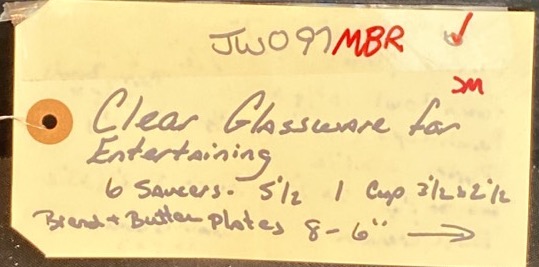 JW097 MBR
JM
Clear Glassware for
Entertaining
6 Saucers. 5 1/2 1 Cup 3 1/2 x 2 1/2
Bread + Butter plates 8 - 6" →